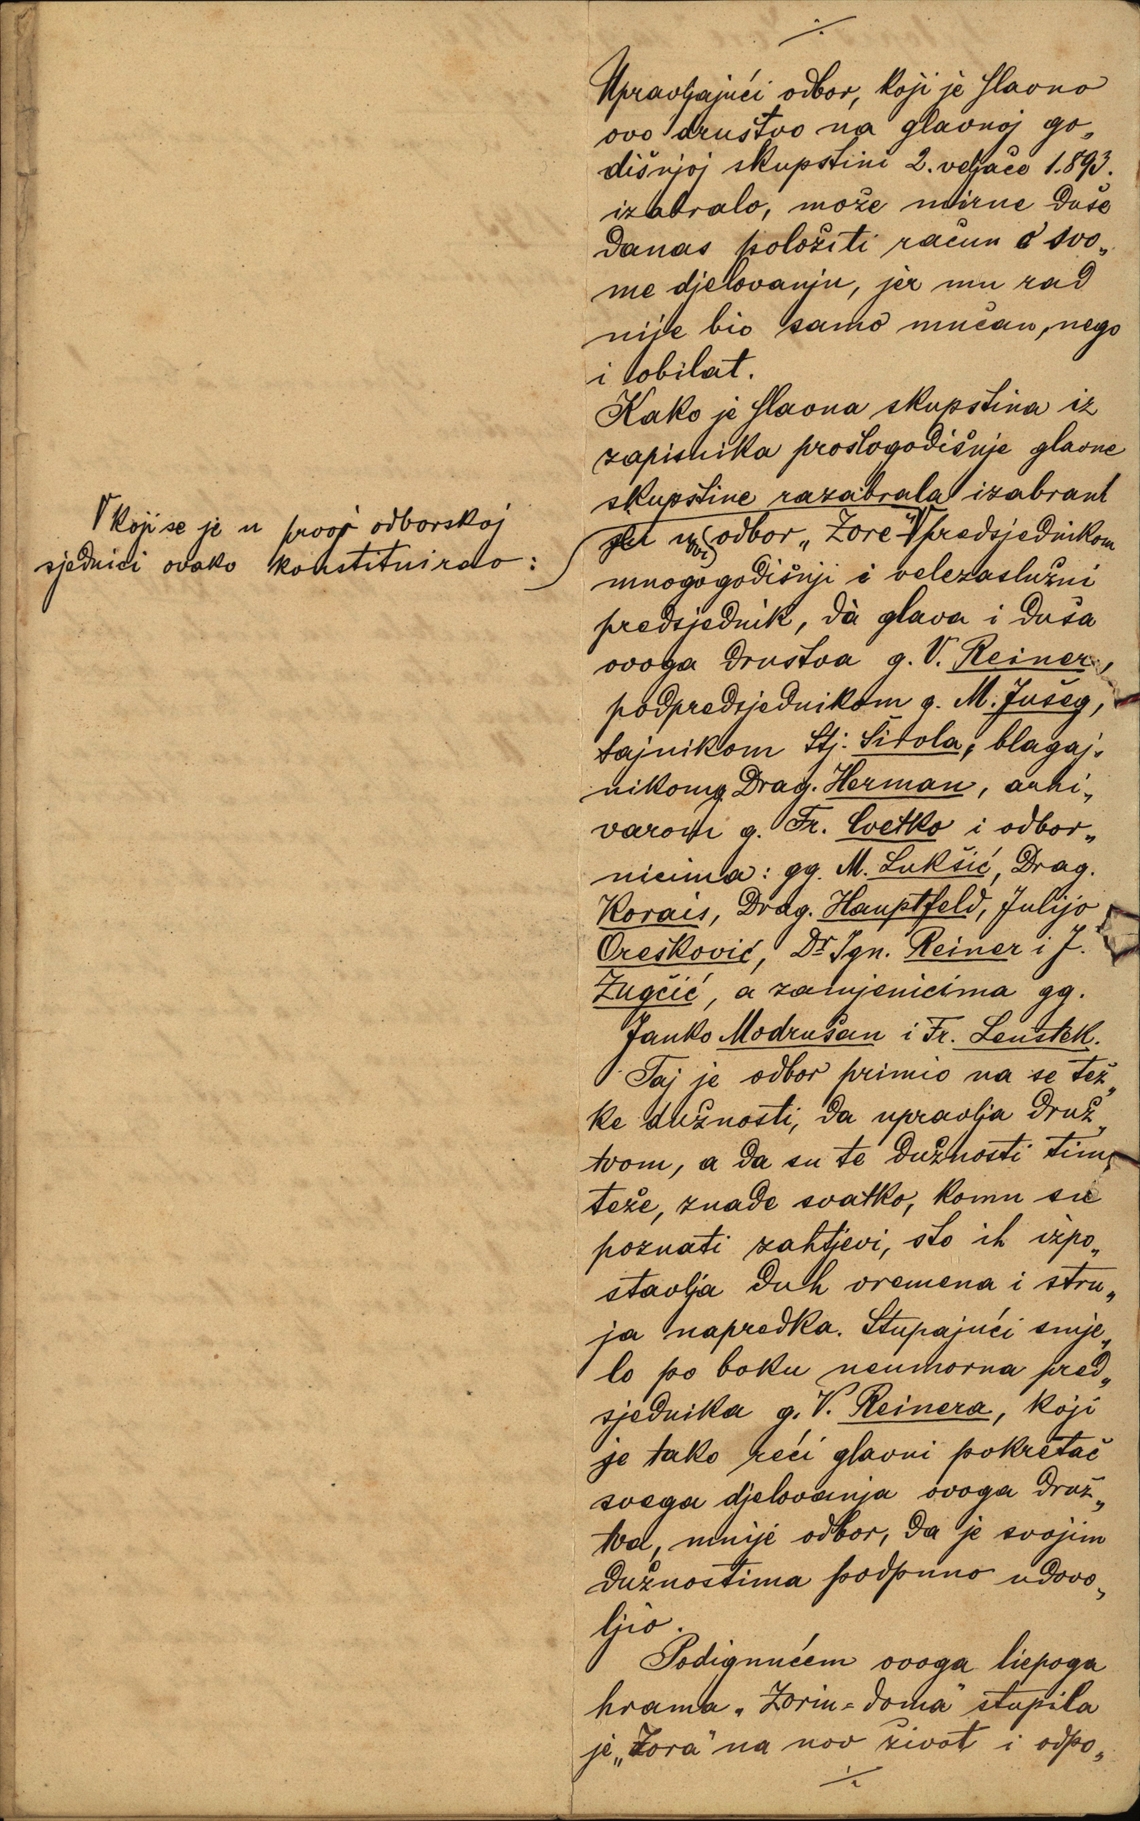 Upravljajući odbor, koji je slavno
ovo društvo na glavnoj go„
dišnjoj skupštini 2. veljače 1.893.
izabralo, može mirne duše
danas položiti račun o svo„
me djelovanju, jer mu rad
nije bio samo mučan, nego
i obilat.
Kako je slavna skupština iz
zapisnika prošlogodišnje glavne
skupštine razabrala izabrani
odbor „Zore" predsjednikom
V koji se je u prvoj odborskoj
sjednici ovako konstituirao:
mnogogodišnji i velezaslužni
predsjednik, dà glava i duša
ovoga društva g. V. Reiner,
podpredsjednikom g. M. Jušeg,
tajnikom Stj. Širola, blagaj„
nikom g. Drag. Herman, arhi„
varom g. Fr. Cvetko i odbor„
nicima: gg. M. Lukšić, Drag.
Korais, Drag. Hauptfeld, Julijo
Orešković, Dr Ign. Reiner i J.
Žugčić, a zamjenicima gg.
Janko Modrušan i Fr. Leustek.
Taj je odbor primio na se tež„
ke dužnosti, da upravlja druž„
tvom, a da su te dužnosti tim
teže, znade svatko, komu su
poznati zahtjevi, što ih izpo„
stavlja duh vremena i stru„
ja napredka. Stupajući smje„
lo po boku neumorna pred„
sjednika g. V. Reinera, koji
je tako reći glavni pokretač
svega djelovanja ovoga druž„
tva, mnije odbor, da je svojim
dužnostima podpuno udovo„
ljio.
Podignućem ovoga liepoga
hrama „Zorin=doma" stupila
je „Zora" na nov život i odpo„